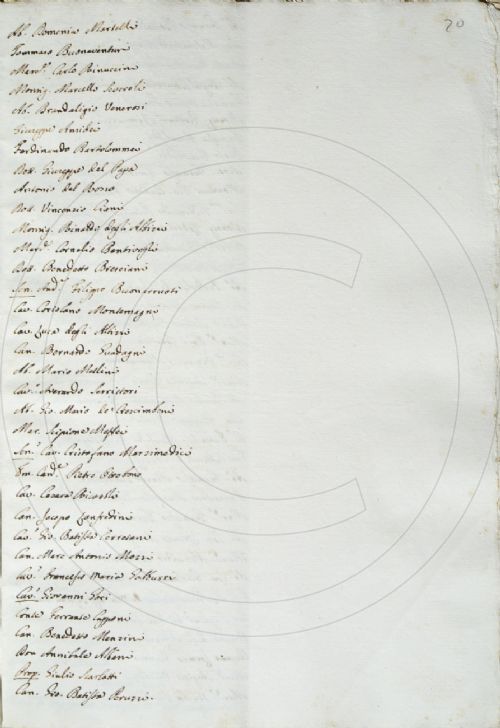 70
Ab. Domenico Martelli
Tommaso Buonaventuri
March. Carlo Rinuccini
Monsig. Marcello Severoli
Ab. Brandaligio Venerosi
Giuseppe Averani
Ferdinando Bartolommei
Dott. Giuseppe del Papa
Antonio del Rosso
Dott. Vincenzio
Monsig. Rinaldo degli Albizi
Mar. Cornelio Bentivogli
Dott. Benedetto Bresciani
Sen. And. Filippo Buonarruoti
Cav. Coriolano Montemagni
Cav. Luca degli Albizzi
Can. Bernardo Guadagni
Ab. Mario Mellini
Cav. Averardo Serristori
Ab. Gio. Mario de' Crescimbeni
Mar. Scipione Maffei
Sn. Cav. Cristofano Marzimedici
Em. Card. Pietro Ottoboni
Cav. Cesare Ricasoli
Can. Jacopo Zanfredini
Cav. Gio. Batista Cerretani
Can. Marc Antonio Mozzi
Cav. Francesco Maria Gabburri
Cav. Giovanni
Conte Ferrante Capponi
Can. Benedetto Menzini
Don Annibale Albani
Prop. Giulio Scarlatti
Can. Gio. Batista Peruzzi.